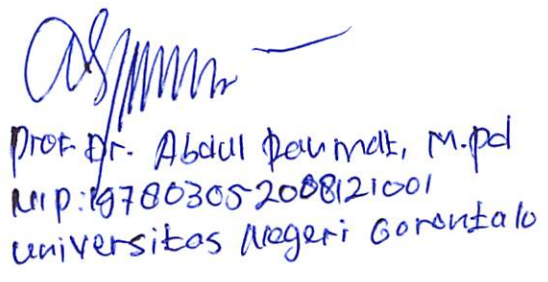 Prof. Dr. Abdul Rahmat, M.pd
NIP: 197803052008121001
Universitas Negeri Gorontalo